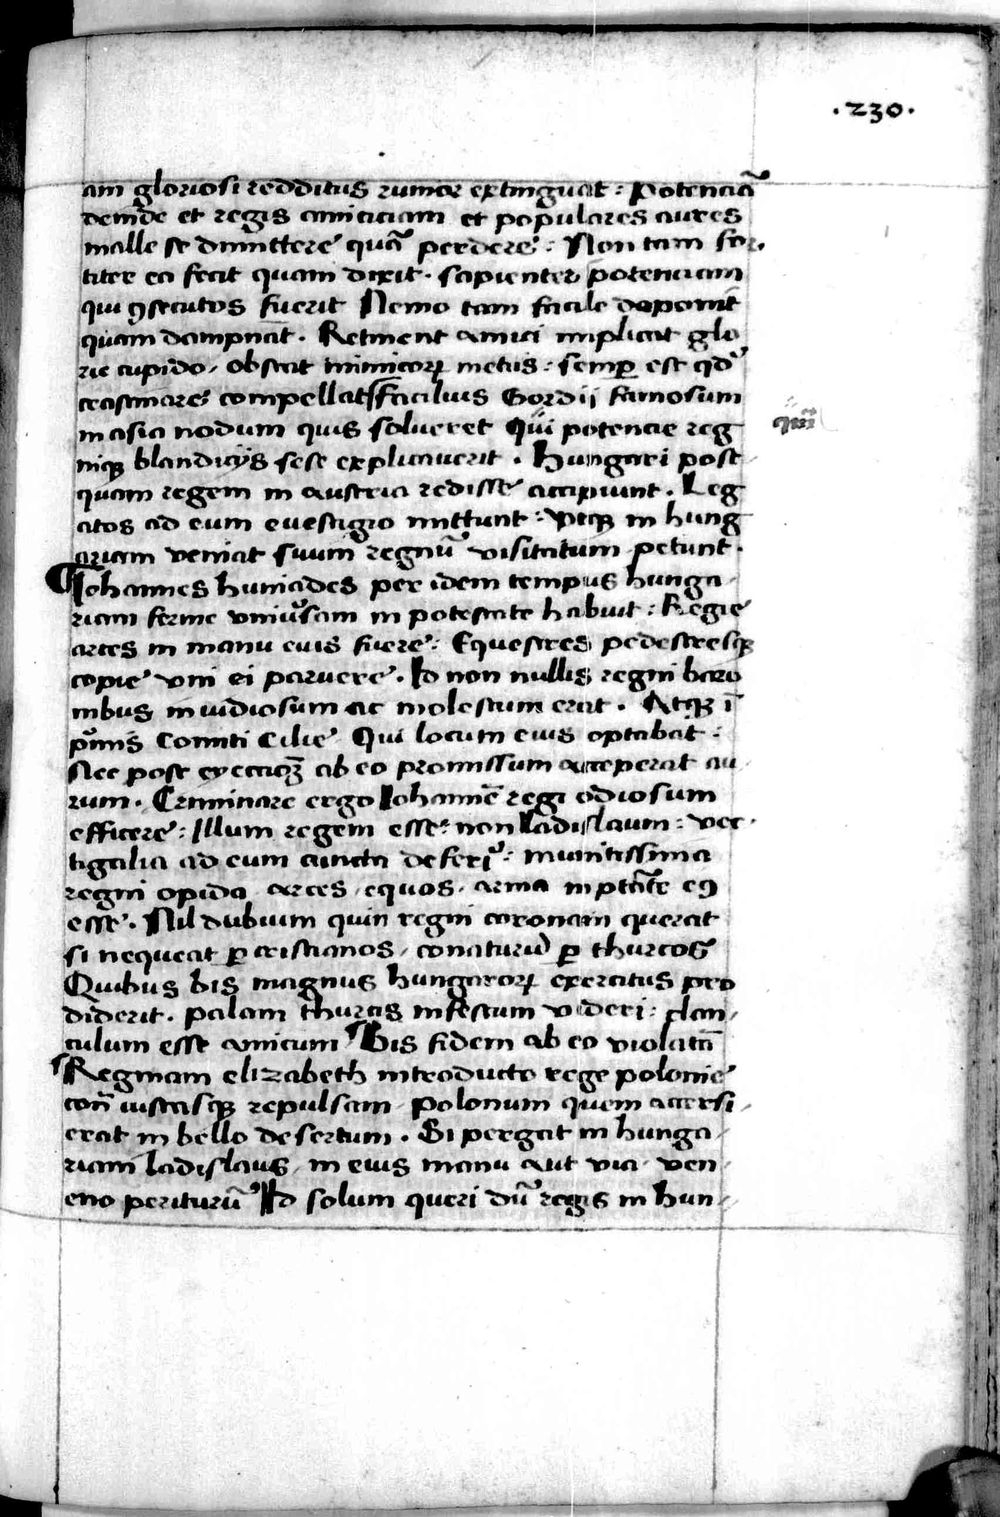 .230.
am gloriosi redditus rumor extinguat : Potenciā
deinde et regis amiciciam et populares aures
malle se dimittere quā perdere : Non tam for
titer ea fecit quam dixit . sapienter potenciam
qui ꝯsecutus fuerit Nemo tam facile deponit
quam dampnat . Retinent amici implicat glo
rie cupido / obstat inimicoꝝ metus : semꝑ est qd̕
creastinare compellat facilius Gordii famosum
in asia nodum quis solueret Qui potencie reg
niqꝫ blandicijs sese explicauerit . Hungari post
quam regem in austria redisse accipiunt . Leg
atos ad eum euestigio mittunt : vtqꝫ in hung
ariam veniat suum regnū visitatum petunt .
¶Iohannes huniades per idem tempus hunga
riam ferme vniu̕sam in potestate habuit : Regie
artes in manu eius fuere : Equestres pedestresqꝫ
copie vni ei paruere . Id non nullis regni baro
nibus inuidiosum ac molestum erat . Atqꝫ ī
pⁱmis Comiti Cilie Qui locum eius optabat :
Nec post eyectioꝫ ab eo promissum acceperat au
rum . Criminare ergo Iohannē regi odiosum
efficere : Illum regem esse : non Ladislaum : vec
tigalia ad eum cuncta deferi̕ : munitissima
regni opida arces / equos / arma in ptāte eꝰ
esse . Nil dubium quin regni coronam querat
si nequeat ꝑ cristianos / conaturū ꝑ thurcos
Quibus bis magnus hungaroꝝ exercitus pro
diderit . palam thurcis infestum videri : clan
culum esse amicum Bis fidem ab eo violatā
Reginam elizabeth introducto rege polonie
con̄ iustasqꝫ repulsam / Polonum quem accersi
erat in bello desertum . Si pergat in hunga
riam ladislaus / in eius manu aut via / ven
eno periturū Id solum queri dū regis in hun